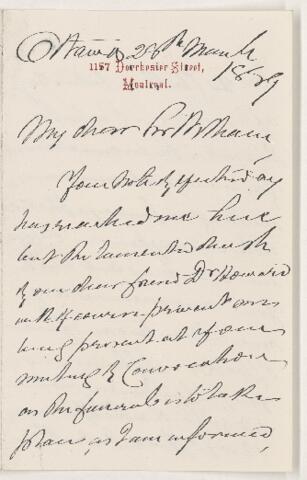 Ottawa 28th March
1157 Dorchester Street,
Montreal.
1889
My dear Sir William,
Your note of yesterday
has reached me here
but the lamented death
of our dear friend Dr Howard
will of course prevent our
being present at your
meeting of Convocation
as the funeral is to take
place, as I am informed,